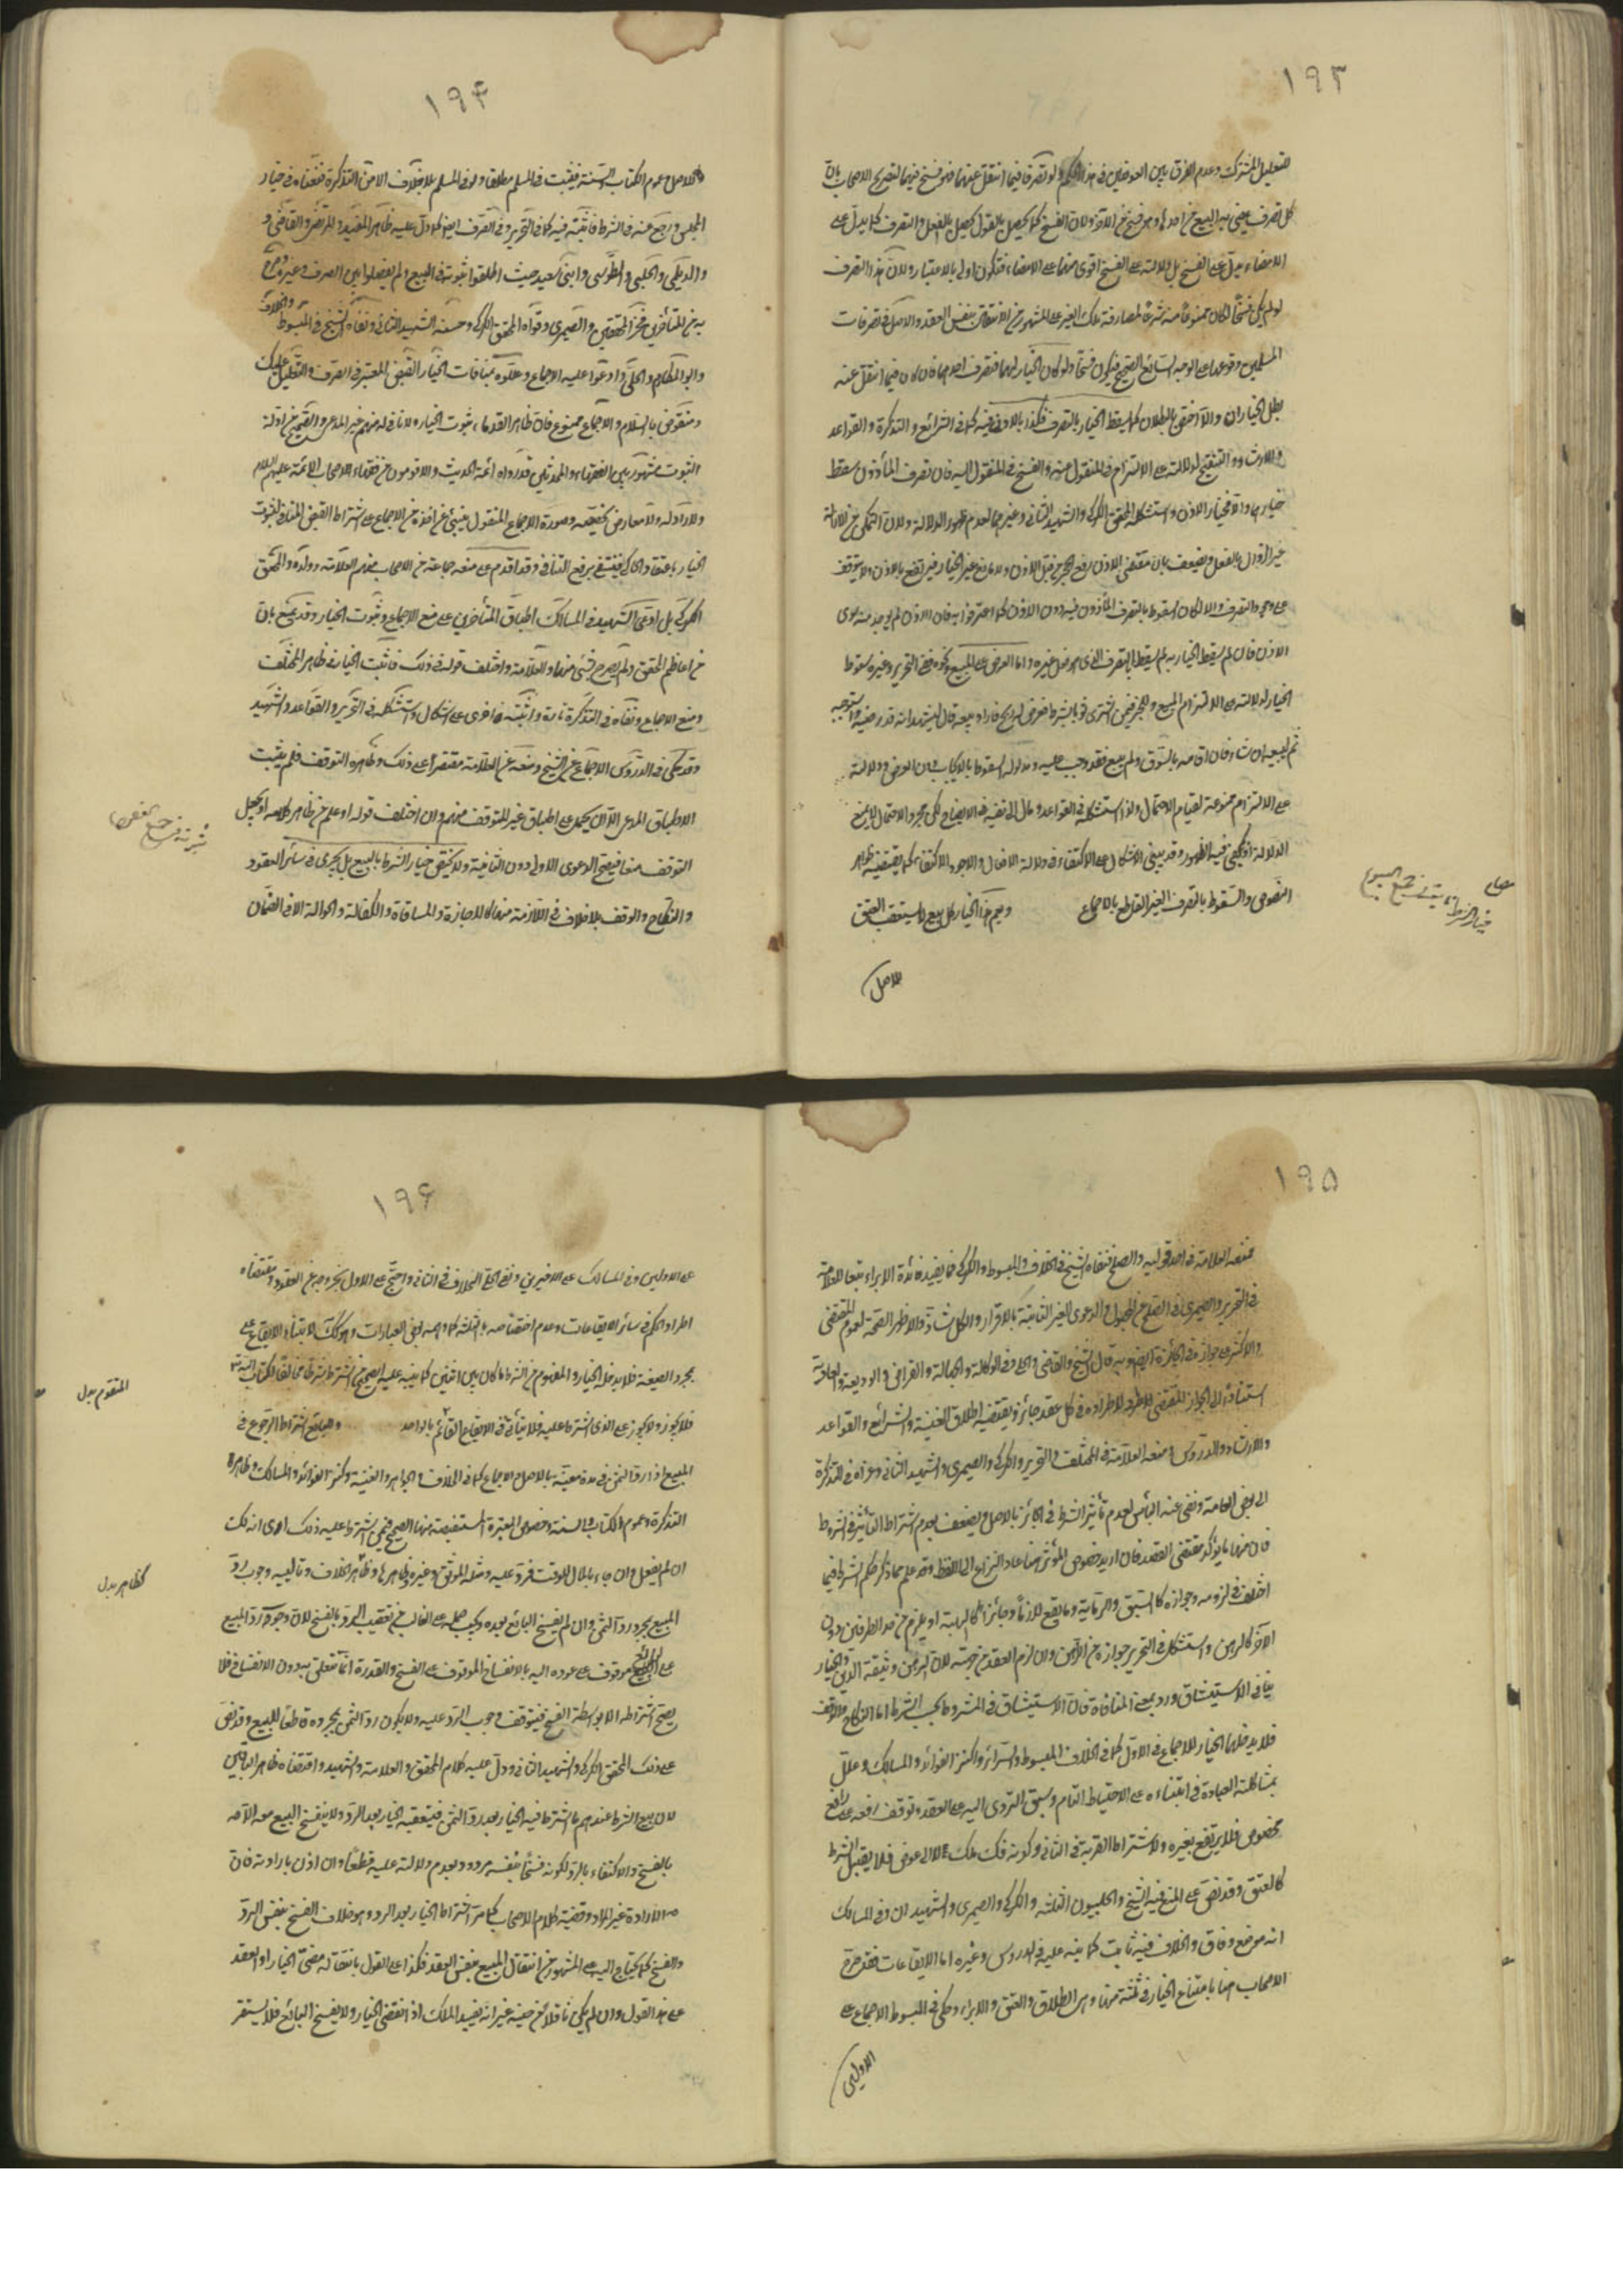 ١٩٣
للتعليل المشترك وعدم الفرق بين العوضين في هذا الحكم ولو تصرفا فيما انتقل عنهما فهو فسخ منهما لتصريح الاصحاب بان
كل تصرف يمضي به البيع من احدهما فهو فسخ من الآخر ولان الفسخ كما يحصل بالقول يحصل بالفعل والتصرف كما يدل على
الامضاء يدل على الفسخ بل دلالته على الفسخ اقوى منها على الامضاء فتكون اولى بالاعتبار ولان هذا التصرف
لو لم يكن فسخا لكان ممنوعا منه شرعا لمصادفته ملك الغير على المشهور من الانتقال بنفس العقد والاصل في تصرفات
المسلمين وقوعها على الوجه السائغ الصحيح فيكون فسخا ولو كان الخيار لهما فتصرف احدهما فان كان فيما انتقل عنه
بطل الخياران والا اختص بالبطلان كما يسقط الخيار بالتصرف فكذا بالاذن فيه كما في الشرائع والتذكرة والقواعد
والارشاد والتنقيح لدلالته على الالتزام في المنقول منه والفسخ في المنقول اليه فان تصرف المأذون سقط
خيارهما والا فخيار الاذن واستشكله المحقق الكركي والشهيد الثاني وغيرهما لعدم ظهور الدلالة ولان التمكن من الازالة
غير الزوال بالفعل ويضعف بان مقتضى الاذن رفع الحجر من قبل الاذن ولا مانع غير الخيار فيرتفع بالاذن ولا يتوقف
على وجود التصرف والا لكان السقوط بالتصرف المأذون فيه دون الاذن كما اعترفوا به فان الاذن لم يوجد منه سوى
الاذن فان لم يسقط الخيار به لم يسقط بالتصرف الذي هو فعل غيره واما العرض على البيع ونحوه ففي التحرير وغيره سقوط
الخيار لدلالته على الالتزام بالمبيع وللخبر فيمن اشترى ثوبا بشرط فعرض له ربح فاراد بيعه قال ليشهد انه قد رضيه واستوجبه
ثم ليبعه ان شاء فان اقامه بالسوق ولم يبع فقد وجب عليه ومدلوله السقوط بالايجاب دون العرض ودلالته
على الالتزام ممنوعة لقيام الاحتمال ولذا استشكله في القواعد ومال الى نفيه في الايضاح لكن مجرد الاحتمال لا يمنع
الدلالة اذ يكفي فيه الظهور وقد يبنى الاشكال على الاكتفاء في دلالة الافعال والاجود الاكتفاء كما يقتضيه ظواهر
النصوص والسقوط بالتصرف الغير القاطع بالاجماع ويعم هذا الخيار كل بيع لا يستعقب العتق
للاصل
خيار الشرط يثبت في جميع البيوع
١٩۴
للاصل وعموم الكتاب والسنة فيثبت في السلم مطلقا ولو في المسلم بلا خلاف الا من التذكرة فنفاه في خيار
المجلس ورجع عنه في الشرط فاثبته فيه كما في التحرير وفي الصرف ايضا كما دل عليه ظاهر المفيد والمرتضى والقاضي و
والديلمي والحلبي والطوسي وابني سعيد حيث اطلقوا ثبوته في المبيع ولم يفصلوا بين الصرف وغيره وصرح
به من المتأخرين فخر المحققين والصيمري وقواه المحقق الكركي وحسنه الشهيد الثاني ونفاه الشيخ في المبسوط والخلاف
وابو المكارم والحلي وادعوا عليه الاجماع وعللوه بمنافات الخيار القبض المعتبر في الصرف والتعليل عليك
ومنقوض بالسلام والاجماع ممنوع فان ظاهر القدماء ثبوت الخيار ولا نافي له منهم غير المدعي والصحيح من ادلة
الثبوت مشهور بين الفقهاء والمحدثين قد رواه ائمة الحديث والاقدمون من فقهاء الاصحاب الائمة عليهم السلام
ولا راد له ولا معارض يخصصه وصورة الاجماع المنقول ينبئ عن اخذه من الاجماع على اشتراط القبض المنافي لثبوت
الخيار باعتقاد الحاكي فينتفي برفع التنافي وقد اقدم على منعه جماعة من الاصحاب منهم العلامة وولده والمحقق
الكركي بل ادعى الشهيد في المسالك اطباق المتأخرين على منع الاجماع وثبوت الخيار وقد يمنع بان
من اعاظم المحقق ولم يصرح بشيء منهما والعلامة واختلف قوله في ذلك فاثبت الخيار في ظاهر المختلف
ومنع الاجماع ونفاه في التذكرة تارة واثبته اخرى على اشكال واستشكله في التحرير والقواعد والشهيد
وقد حكى في الدروس الاجماع عن الشيخ ومنعه عن العلامة مقتصرا على ذلك وظاهره التوقف فلم يثبت
الاطباق المدعى الا ان يحمل على اطباق غير المتوقف منهم وان اختلف قوله او علم من ظاهر كلامه او يجعل
التوقف منعا فيصح الدعوى الاولى دون الثانية ولا يختص خيار الشرط بالبيع بل يجري في سائر العقود
والنكاح والوقف بلا خلاف في اللازمة منها كالاجارة والمساقاة والكفالة والحوالة الا في الضمان
ثبوته في جميع العقود
١٩۵
فمنعه العلامة في احد قوليه والصلح فنفاه الشيخ في الخلاف والمبسوط والكركي فيما يفيد فائدة الابراء تبعا للعلامة
في التحرير والصيمري في الصلح عن المجهول والدعوى الغير الثابتة بالاقرار والكل شاذ والاظهر الصحة لعموم المقتضى
والاكثر على جوازه في الجائزة ايضا وبه قال الشيخ والقاضي والحلي في الوكالة والجعالة والقراض والوديعة والعارية
استنادا الى الجواز المقتضي لاطراده في كل عقد جائز ويقتضيه اطلاق الغنية والشرائع والقواعد
والارشاد والدروس ومنعه العلامة في المختلف والتحرير والكركي والصيمري والشهيد الثاني وعزاه في التذكرة
الى بعض العامة ونفى عنه البأس لعدم تأثير الشرط في الجائز بالاصل ويضعف بعدم اشتراط التأثير في الشروط
فان منها ما يؤكد مقتضى العقد فان اريد خصوص المؤثر منها عاد النزاع الى اللفظ وقد علم مما ذكر حكم الشرط فيما
اختلف في لزومه وجوازه كالسبق والرماية وما يقع لازما وجائزا كالهبة او يلزم من احد الطرفين دون
الآخر كالرهن واستشكل في التحرير جوازه من الراهن وان لزم العقد من جهته لان الرهن وثيقة الدين والخيار
ينافي الاستيثاق ورد بمنع المنافاة فان الاستيثاق في المشروط بحسب الشرط اما النكاح والوقف
فلا يدخلهما الخيار للاجماع في الاول كما في الخلاف والمبسوط والسرائر وكنز الفوائد والمسالك وعلل
بمشاكلته العبادة في ابتنائه على الاحتياط التام وسبق التروي اليه على العقد وتوقف رفعه على رافع
مخصوص فلا يرتفع بغيره ولاشتراط القربة في الثاني وكونه فك ملك لا الى عوض فلا يقبل الشرط
كالعتق وقد نص على المنع فيه الشيخ والحلبيون الثلثة والكركي والصيمري والشهيدان وفي المسالك
انه موضع وفاق والخلاف فيه ثابت كما نبه عليه في الدروس وغيره اما الايقاعات فقد صرح
الاصحاب هنا بامتناع الخيار في ثلثة منها وهي الطلاق والعتق والابراء وحكي في المبسوط الاجماع على
الاولين
١٩۶
على الاولين وفي المسالك على الاخيرين ونفى الحلي الخلاف في الثاني واحتج على الاول بخروجه عن العقود ومقتضاه
اطراد الحكم في سائر الايقاعات وعدم اختصاصه بالثلثة كما يوهمه بعض العبارات وهو كذلك لابتناء الايقاع على
مجرد الصيغة فلا يدخله الخيار والمفهوم من الشرط ما كان بين اثنين كما ينبه عليه الصحيح من اشترط شرطا مخالفا لكتاب الله
فلا يجوز ولا يجوز على الذي اشترط عليه فلا يتأتى في الايقاع القائم بالواحد وللبايع اشتراط الرجوع في
المبيع اذا رد الثمن في مدة معينة بالاصل والاجماع كما في الخلاف والجواهر والغنية وكنز الفوائد والمسالك وظاهر
التذكرة وعموم الكتاب والسنة وخصوص المعتبرة المستفيضة منها الصحيح فيمن اشترط عليه ذلك ارى انه لك
ان لم يفعل وان جاء بالمال للوقت فرد عليه ومثله الموثق وغيره وظاهرها وظاهر الخلاف وتاليه وجوب رد
المبيع بمجرد رد الثمن وان لم يفسخ البائع بعده ويجب حمله على الغالب من تعقيب الرد بالفسخ لان وجوب رد المبيع
على البائع موقوف على عوده اليه بالانفساخ الموقوف على الفسخ والقدرة انما تتعلق به دون الانفساخ فلا
يصح اشتراطه الا بواسطة الفسخ فيتوقف وجوب الرد عليه ولا يكون رد الثمن بمجرده قاطعا للبيع وقد نص
على ذلك المحقق الكركي والشهيد الثاني ودل عليه كلام المحقق والعلامة والشهيد واقتضاه ظاهر الباقين
لان بيع الشرط عندهم ما اشترط فيه الخيار بعد رد الثمن فيتعقبه الخيار بعد الرد ولا ينفسخ البيع معه الا
بالفسخ والاكتفاء بالرد لكونه فسخا بنفسه مردود بعدم دلالته عليه قطعا وان اذن بارادته فان
الارادة غير المراد وقضية كلام الاصحاب كما مر اشتراط الخيار بعد الرد وهو خلاف الفسخ بنفس الرد
والفسخ كما يحتاج اليه على المشهور من انتقال المبيع بنفس العقد فكذا على القول بانتقاله بمضي الخيار اذ العقد
على هذا القول وان لم يكن ناقلا من حينه غير انه يفيد الملك اذا انقضى الخيار ولا يفسخ البائع فلا يستقر
المنقوم بدل
كظاهر بدل